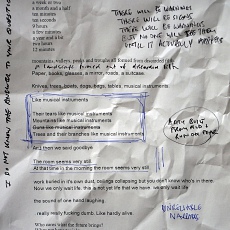 a week or a month
a month and a half
ten minutes
ten seconds
6 hours
a few minutes
a year and a bit
two hours
12 minutes
THERE WILL BE WARNINGS
THERE WILL BE SIGNS
THERE WILL BE WARNINGS
BUT NO ONE WILL SEE THEM
UNTIL IT ACTUALLY HAPPENS
I DO NOT KNOW THE ANSWER TO YOUR QUESTION
mountains, valleys, peaks and troughs all formed from discarded
A landscape formed out of discarded
Paper, books, glasses, a mirror, roads, a suitcase
Knives, trees, boots, dogs, legs, tables, musical instruments
Like musical instruments
Their tears like musical instruments
Mountains like musical instruments
Guns like musical instruments
Trees and their branches like musical instruments
And then we said goodbye
The room seems very still
At that time in the morning the room seems very still
work buried in it's own dust, ceilings collapsing but you didn't know who's in there.
Now we only wait life, this is not yet life that we have, we only wait life
the sound of one hand laughing
really really fucking dumb. Like hardly alive.
UNRELIABLE
NARRATOR
Who says what the future brings?